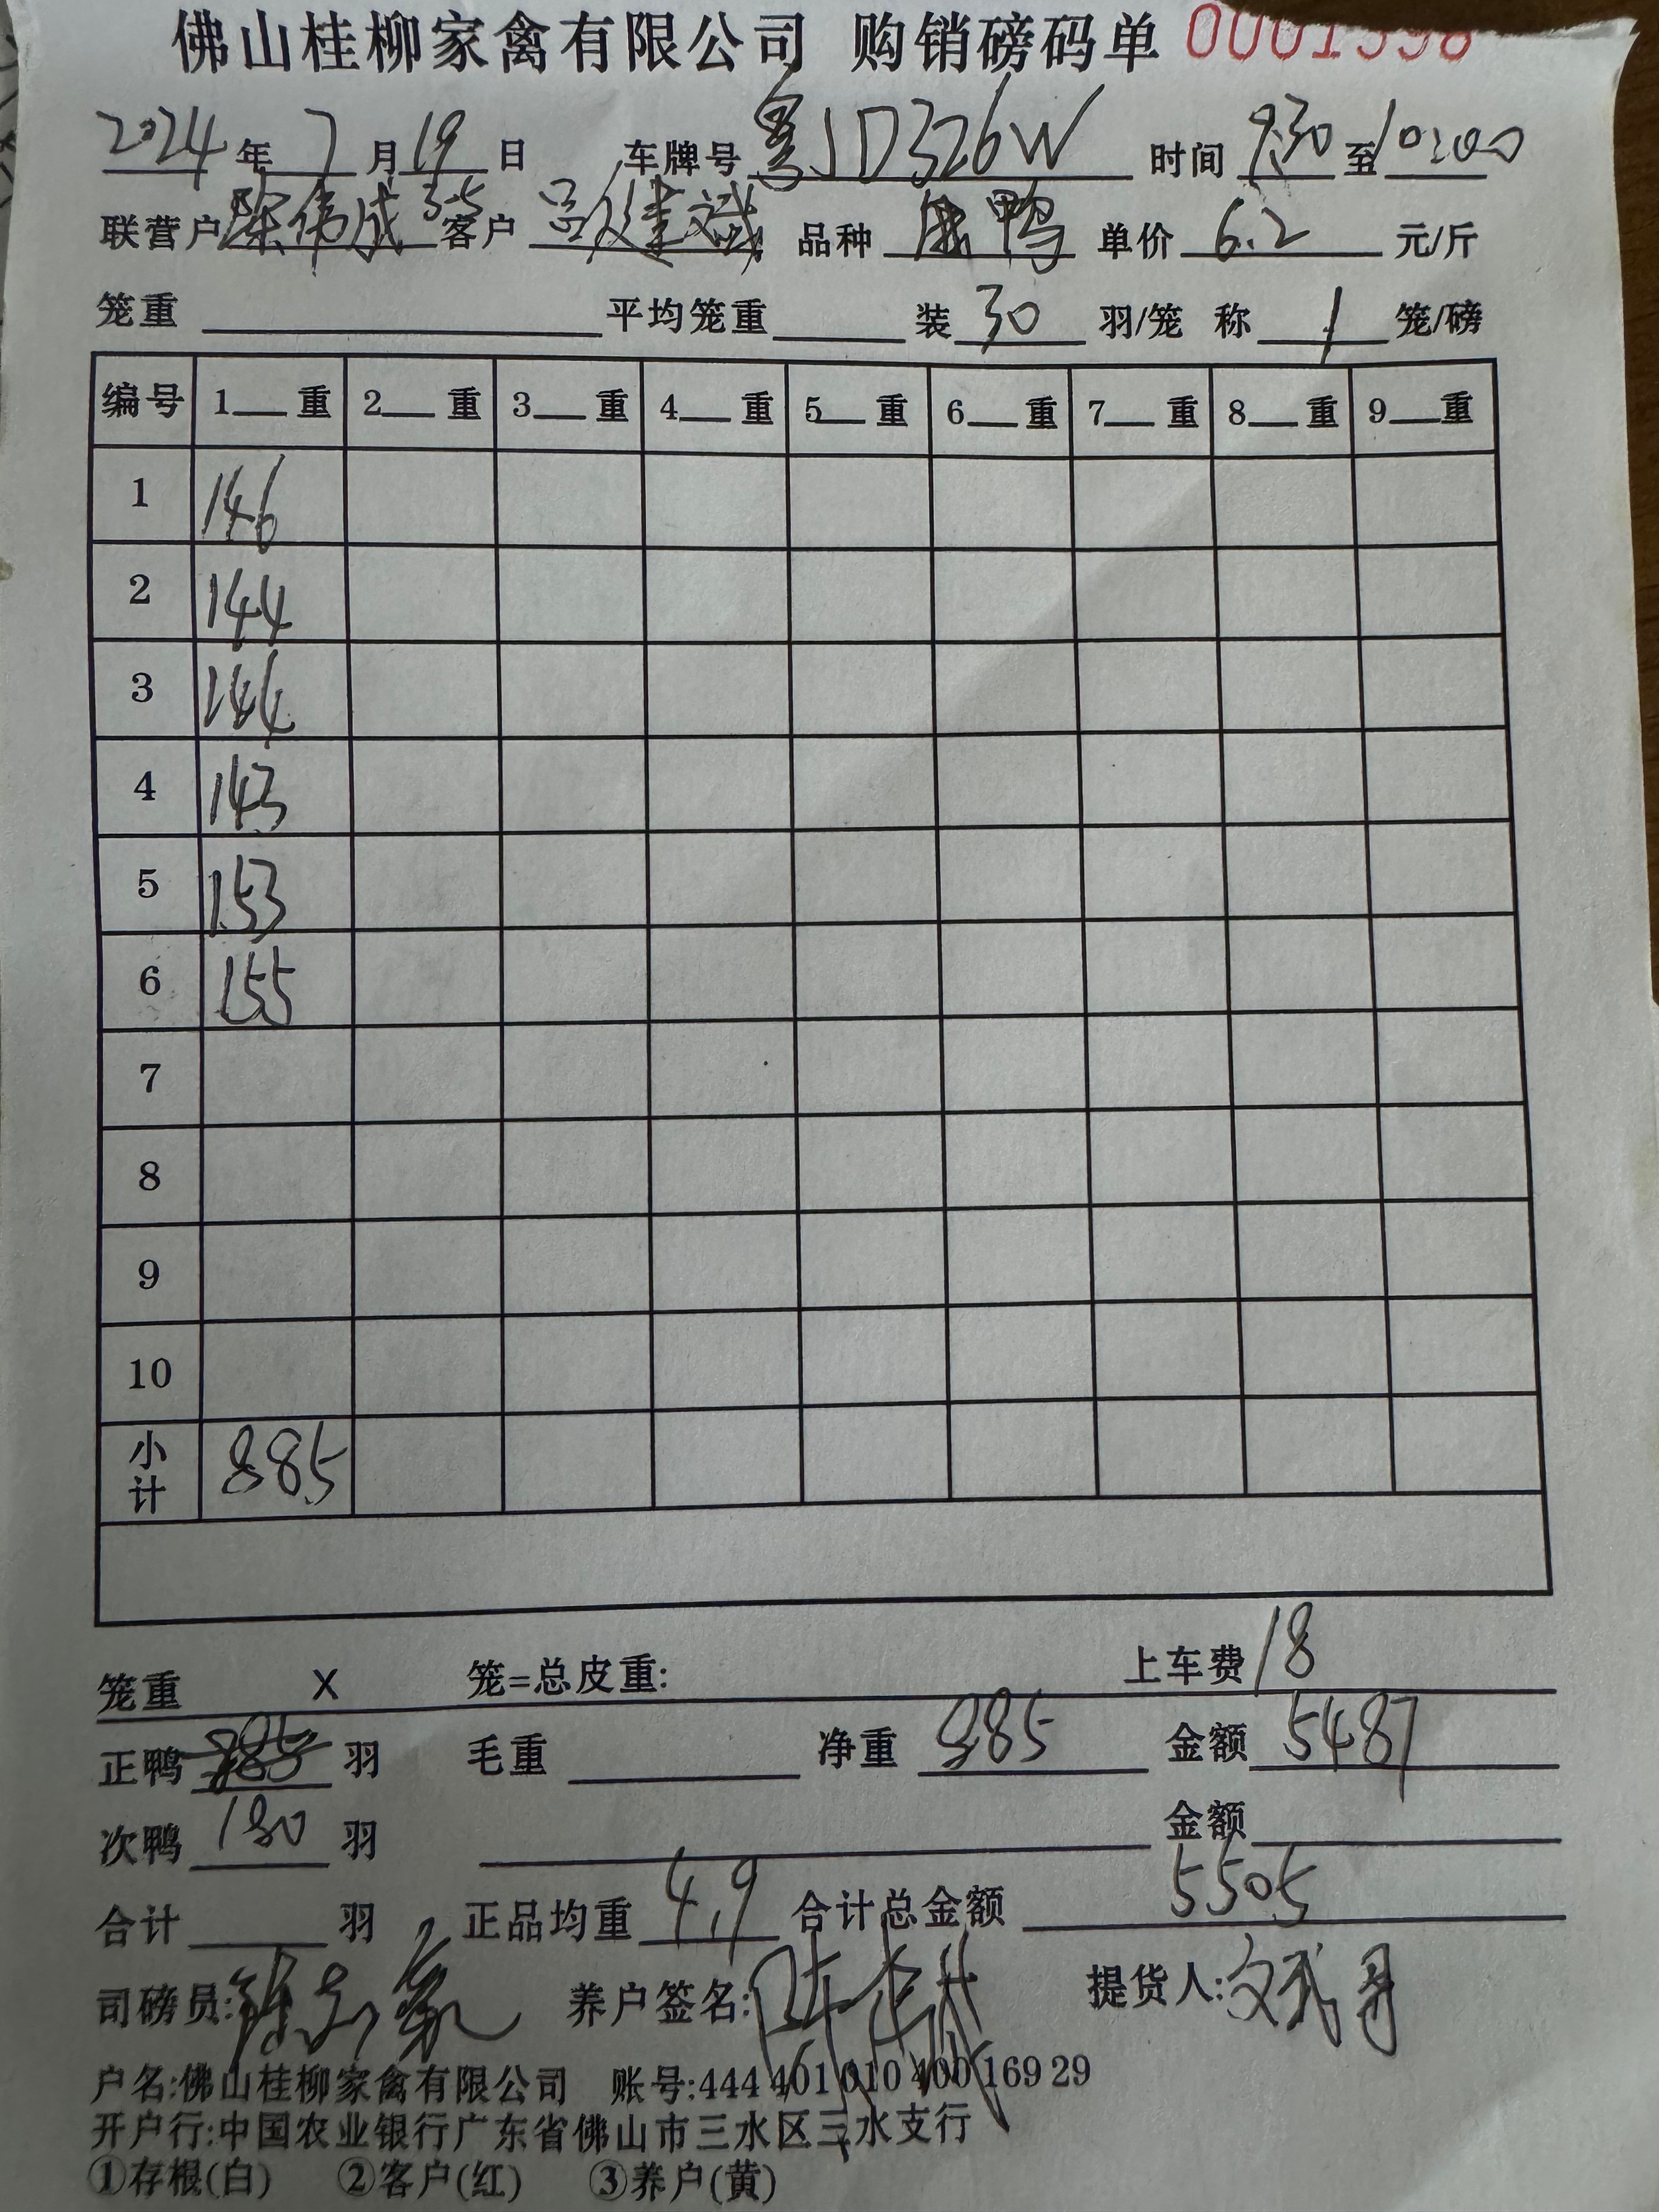 佛山桂柳家禽有限公司 购销磅码单 0001398
2024年7月19日 车牌号 粤JD326W 时间 9:30 至 10:00
联营户 陈伟成 35 客户 吕建斌 品种 鸭 单价 6.2 元/斤
笼重 平均笼重 装 30 羽/笼 称 1 笼/磅
编号 1 重 2 重 3 重 4 重 5 重 6 重 7 重 8 重 9 重
1 146
2 144
3 144
4 143
5 153
6 155
7
8
9
10
小计 885
笼重 X 笼=总皮重: 上车费 18
正鸭 885 羽 毛重 净重 885 金额 5487
次鸭 180 羽 金额
合计 羽 正品均重 4.9 合计总金额 5505
司磅员: 养户签名: 提货人:
户名:佛山桂柳家禽有限公司 账号:444 401 010 400 169 29
开户行:中国农业银行广东省佛山市三水区三水支行
①存根(白) ②客户(红) ③养户(黄)